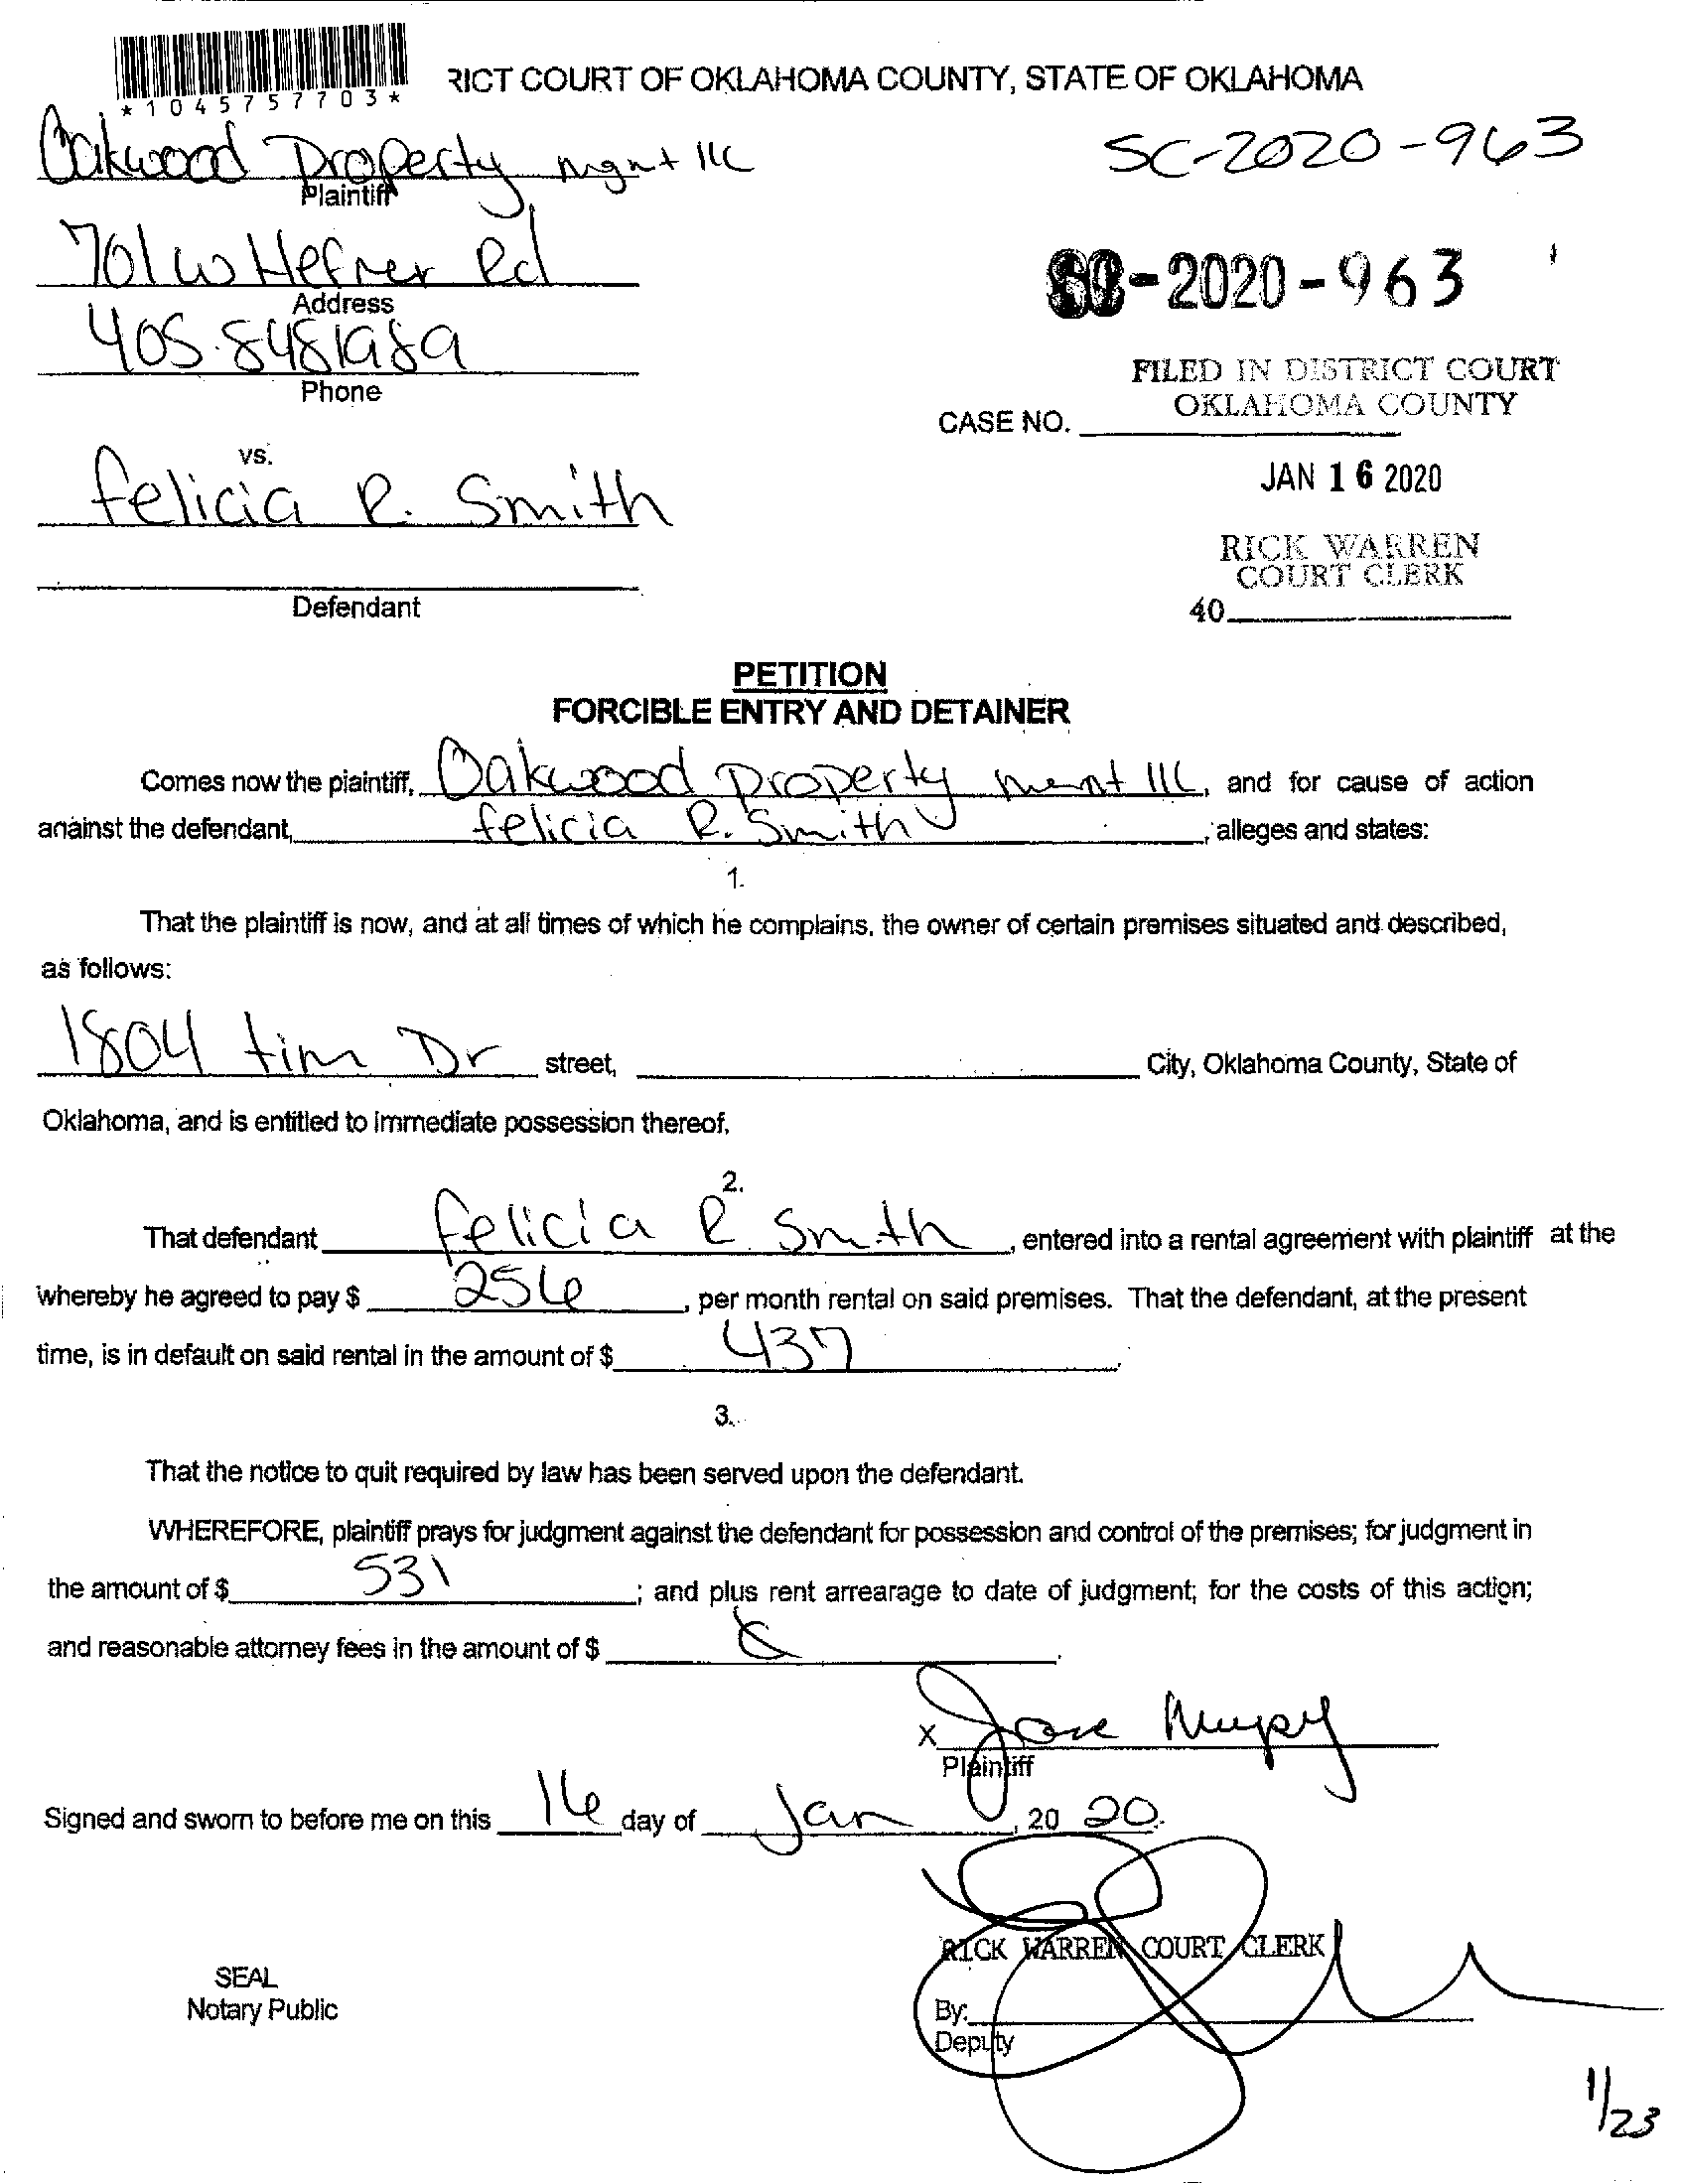 *1045757703*
RICT COURT OF OKLAHOMA COUNTY, STATE OF OKLAHOMA
Oakwood Property Mgmt llc
Plaintiff
SC-2020-963
701 W Hefner Rd
Address
SC-2020-963
405.8481989
Phone
FILED IN DISTRICT COURT
OKLAHOMA COUNTY
CASE NO.
vs.
JAN 16 2020
Felicia R. Smith
RICK WARREN
COURT CLERK
Defendant
40
PETITION
FORCIBLE ENTRY AND DETAINER
Comes now the plaintiff, Oakwood Property Mgmt llc, and for cause of action
against the defendant, Felicia R. Smith, alleges and states:
1.
That the plaintiff is now, and at all times of which he complains, the owner of certain premises situated and described,
as follows:
1804 Tim Dr street, City, Oklahoma County, State of
Oklahoma, and is entitled to immediate possession thereof.
2.
That defendant Felicia R Smith, entered into a rental agreement with plaintiff at the
whereby he agreed to pay $ 256, per month rental on said premises. That the defendant, at the present
time, is in default on said rental in the amount of $ 437.
3.
That the notice to quit required by law has been served upon the defendant.
WHEREFORE, plaintiff prays for judgment against the defendant for possession and control of the premises; for judgment in
the amount of $ 531; and plus rent arrearage to date of judgment; for the costs of this action;
and reasonable attorney fees in the amount of $
X
Plaintiff
Signed and sworn to before me on this 16 day of Jan, 20 20.
RICK WARREN COURT CLERK
SEAL
Notary Public
By:
Deputy
1/23